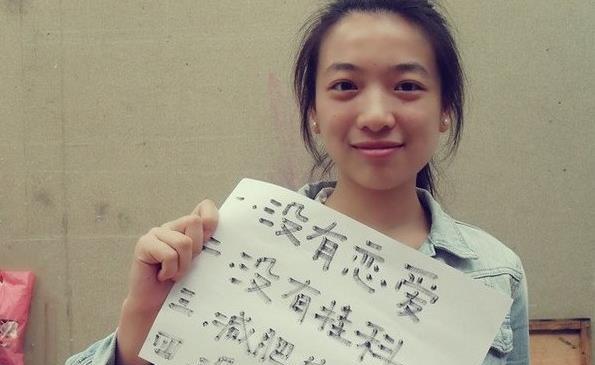 一.没有恋爱
二.没有挂科
三.减肥
四